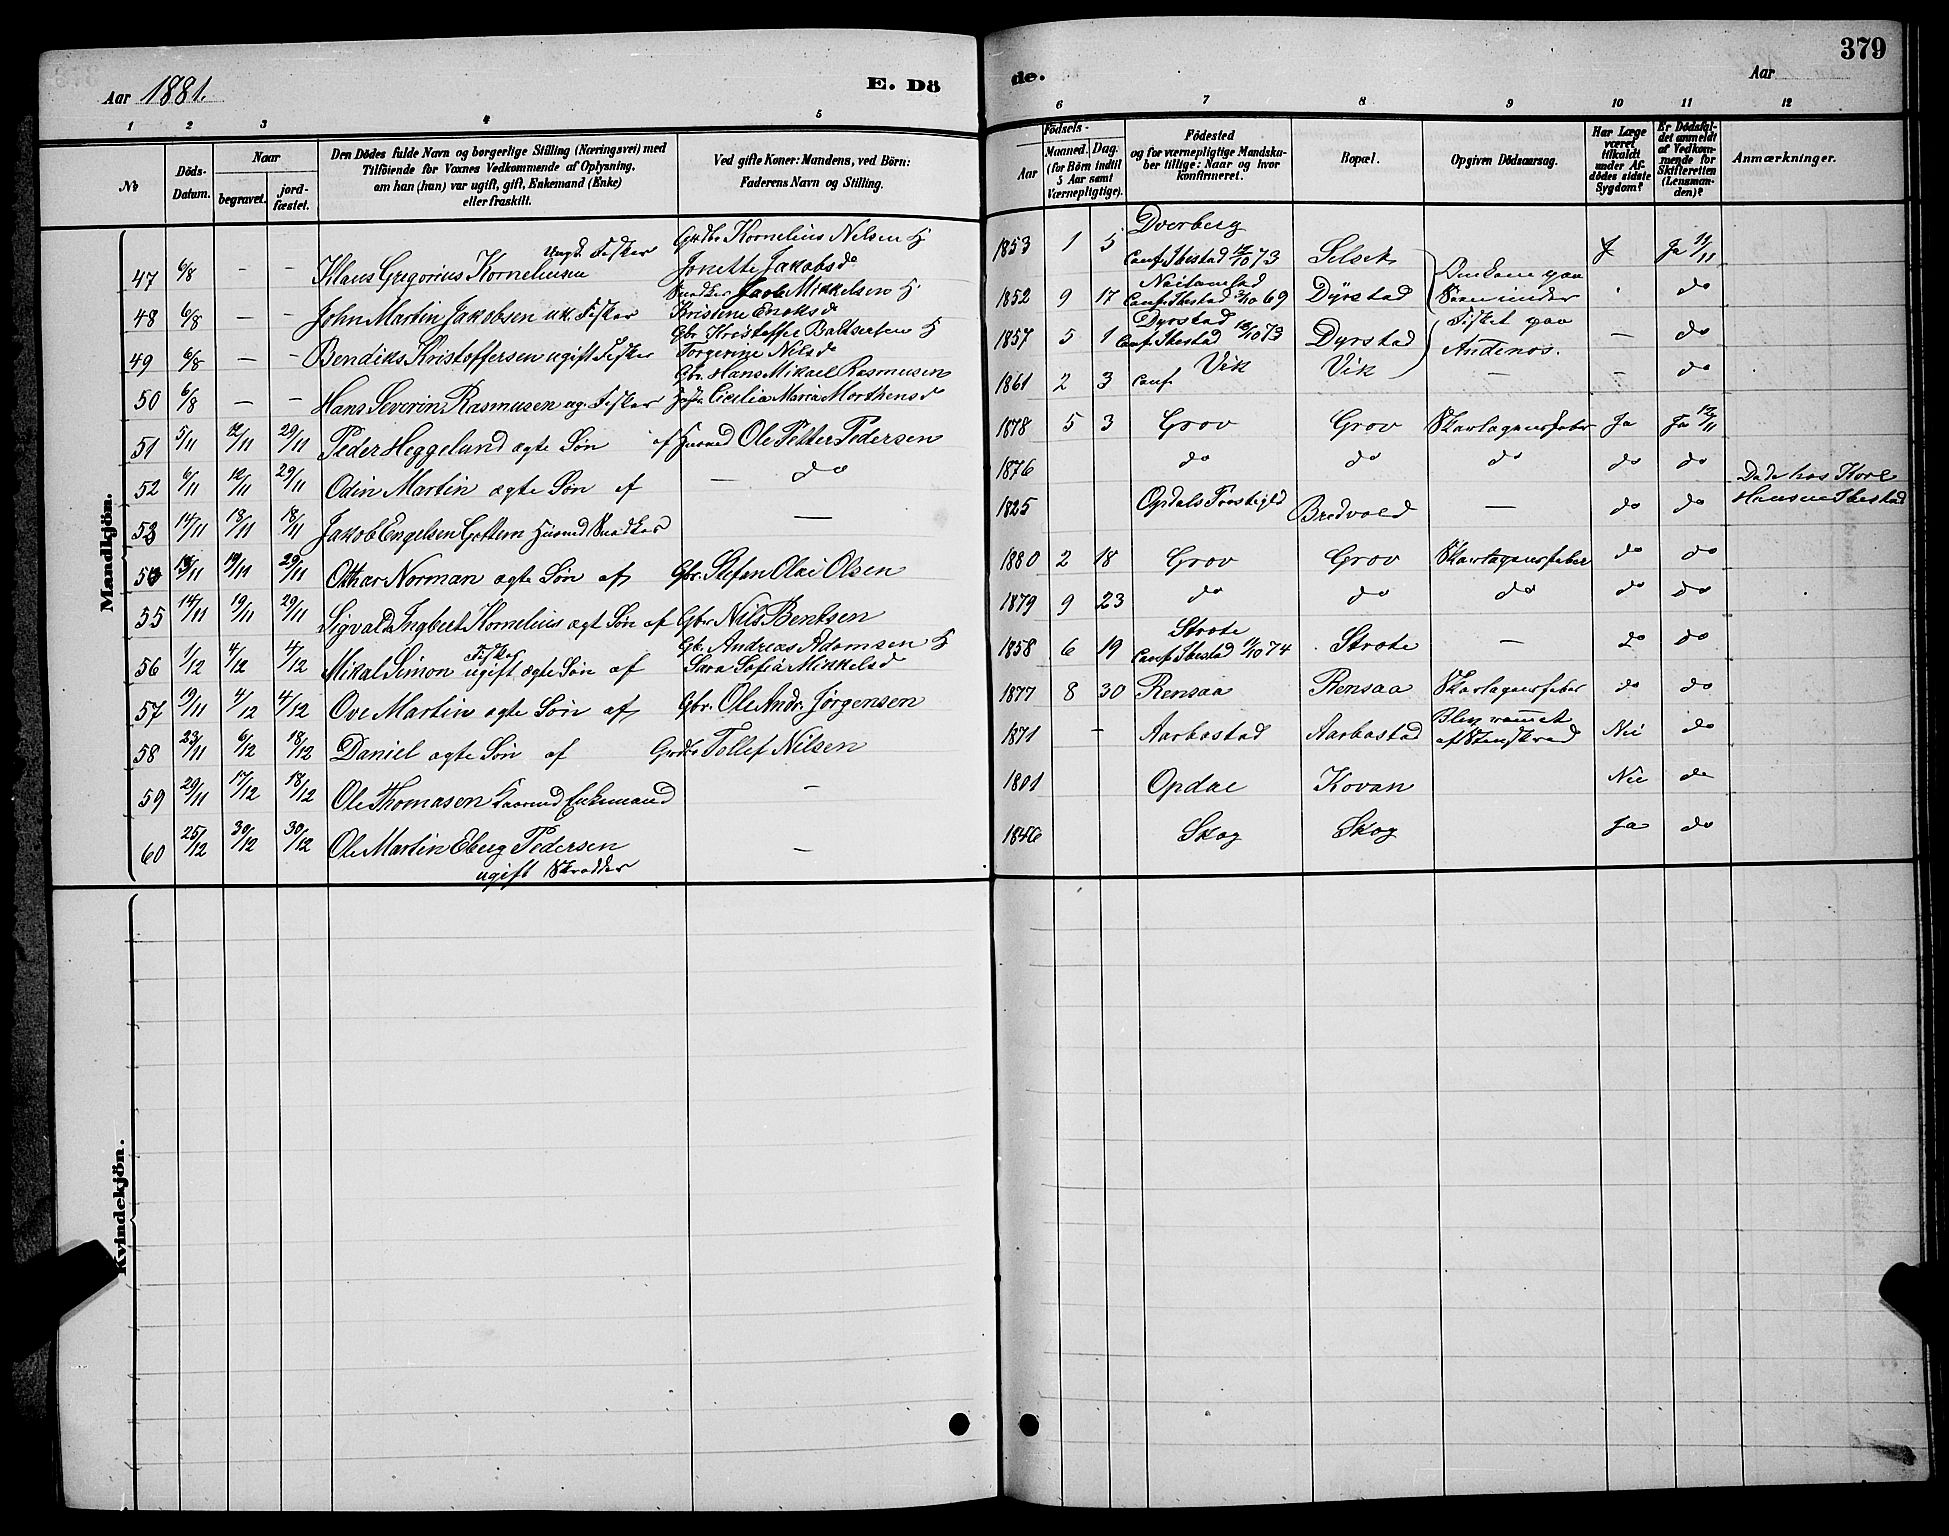 379
Aar 1881. E. Dö de. Aar
1 2 3 4 5 6 7 8 9 10 11 12
No
Döds-Datum.
Naar
begravet.
jord-fæstet.
Den Dödes fulde Navn og borgerlige Stilling (Næringsvei) med
Tilföiende for Voxnes Vedkommende af Oplysning,
om han (hun) var ugift, gift, Enkemand (Enke)
eller fraskilt.
Ved gifte Koner: Mandens, ved Börn:
Faderens Navn og Stilling.
Födsels-
Aar
Maaned. Dag.
(for Börn indtil
5 Aar samt
Værnepligtige).
Födested
og for værnepligtige Mandska-
ber tillige: Naar og hvor
konfirmeret.
Bopæl.
Opgiven Dödsaarsag.
Har Læge
været
tilkaldt
under Af-
dödes sidste
Sygdom?
Er Dödsfal-
det anmeldt
af Vedkom-
mende for
Skifteretten
(Lensman-
den)?
Anmærkninger.
Mandkjön.
47 6/8 – – Klaus Gregorius Korneliusen Ungk. Fisker Grdbr Kornelius Nilsen H Jonette Jakobsd 1853 1 5 Dverberg Conf. Ibestad 12/10 73 Selset Omkom paa J Ja 11/11
48 6/8 – – John Martin Jakobsen uk. Fisker Snedker Jacob Mikkelsen H Kristine Enoksd 1852 9 17 Conf. Ibestad 3/10 69 Dyrstad Söen under do
49 6/8 – – Bendiks Kristoffersen ugift Fisker Gbr Kristoffer Baltsersen H Torgerine Nilsd 1857 5 1 Dyrstad Conf. Ibestad 12/10 73 Dyrstad Fisket paa Andenes. – do
50 6/8 – – Hans Severin Rasmusen ug. Fisker Gbr. Hans Mikael Rasmusen Cecilia Maria Morthensd 1861 2 3 Conf. Vik Vik – – do
51 5/11 12/11 29/11 Peder Heggeland ægte Sön af Husmd Ole Petter Pedersen 1878 5 3 Grov Grov Skarlagensfeber Ja Ja 12/11
52 6/11 12/11 29/11 Odin Martin ægte Sön af – do 1876 do do do do do
53 14/11 18/11 18/11 Jakob Engelsen Husmd Snedker – 1825 Opdals Prestegjld Bredvold – do do Döde hos Kore Hansen Ibestad
54 19/11 29/11 Otthar Norman ægte Sön af Gbr. Stefan Olai Olsen 1880 2 18 Grov Grov Skarlagensfeber do do
55 14/11 19/11 29/11 Sigvald Ingbert Kornelius ægt Sön af Gbr Nils Bentsen 1879 9 23 do do do do do
56 1/12 4/12 4/12 Mikal Simon Fisker ugift ægte Sön af Gb. Andreas Adamsen H Sara Sofia Mikkelsd 1858 6 19 Strote Conf. Ibestad 11/10 74 Strote – do do
57 19/11 4/12 4/12 Ove Martin ægte Sön af Gbr. Ole Andr. Jørgensen 1877 8 30 Rensaa Rensaa Skarlagensfeber do do
58 23/11 6/12 18/12 Daniel ægte Sön af Grdbr Tollef Nilsen 1871 – Aarbostad Aarbostad Blev ramet af Stenskred Nei do
59 29/11 17/12 18/12 Ole Thomasen Enkemand – 1801 Opdal Kovan Nei do
60 25/12 30/12 30/12 Ole Martin Eberg Pedersen – 1846 Skog Skog Ja do
ugift Skrædder
Kvindekjön.